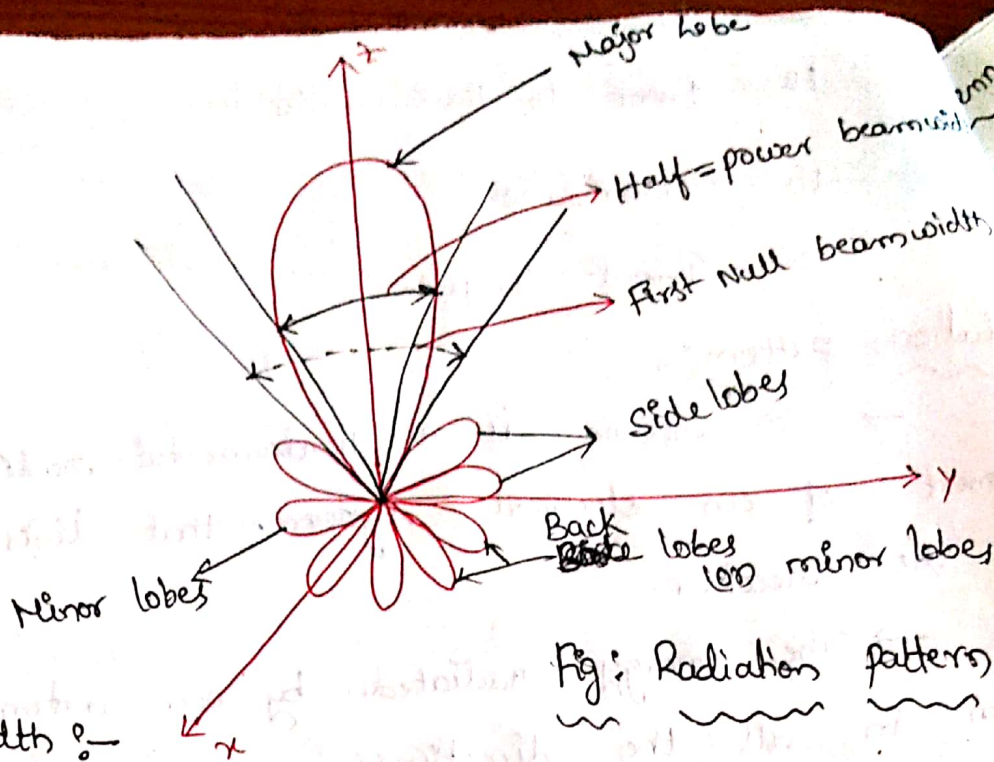 z
Major Lobe
Half=power beamwid
First Null beamwidth
Side lobes
y
Back lobes
(or) minor lobes
Minor lobes
Fig: Radiation pattern
x
dth :-